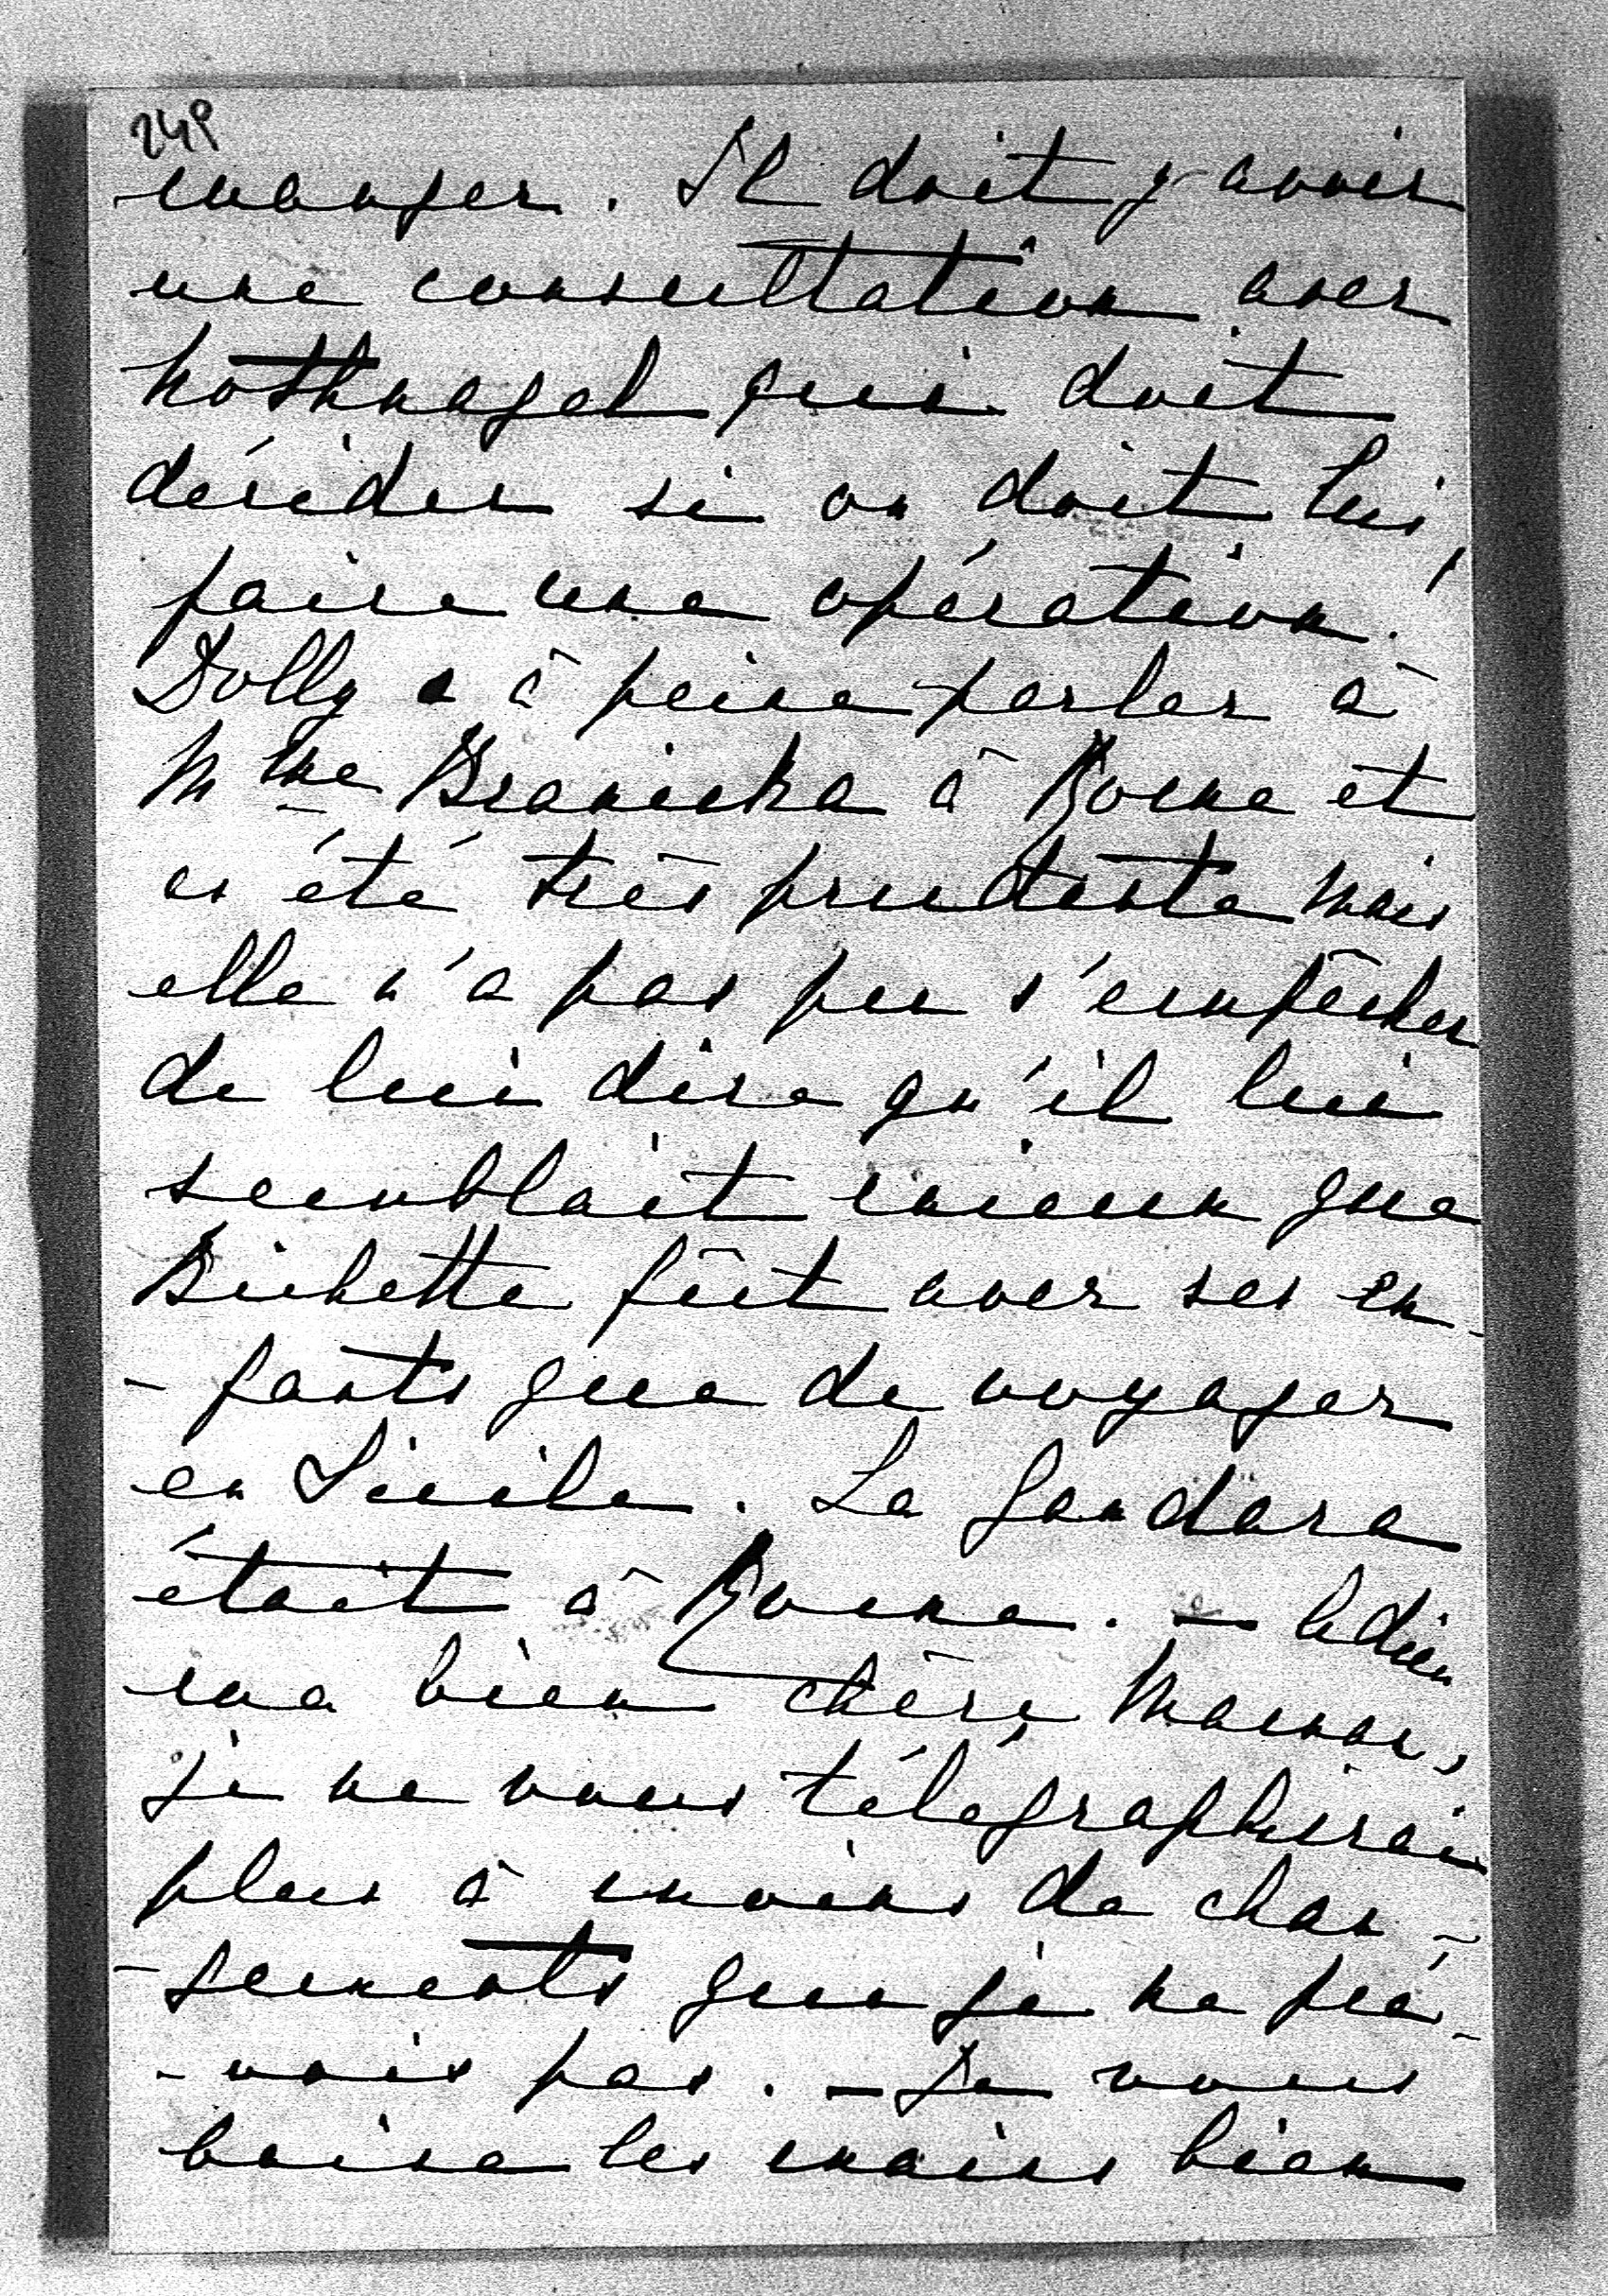 249
manger. Il doit y avoir
une consultation avec
Nothnagel qui doit
décider si on doit lui
faire une opération !
Dolly a à peine parler à
Mme Branicka à Rome et
a été très prudente mais
elle n'a pas pu s'empêcher
de lui dire qu'il lui
semblait mieux que
Bichette fût avec ses en-
-fants que de voyager
en Sicile. La Gandara
était à Rome. — Adieu
ma bien chère Maman,
je ne vous télégraphierai
plus à moins de chan-
-gements que je ne pré-
-vois pas. — Je vous
baise les mains bien